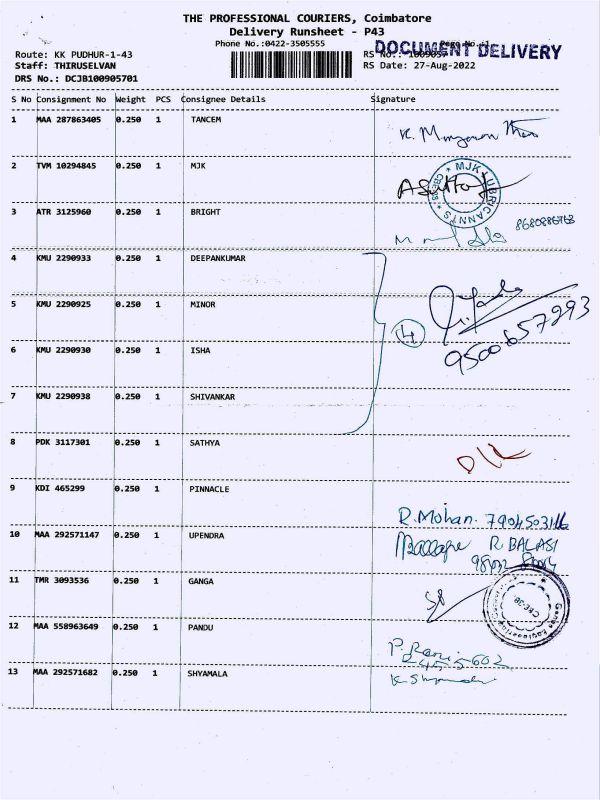 THE PROFESSIONAL COURIERS, Coimbatore
Delivery Runsheet - P43
Phone No.:0422-3505555
DOCUMENT DELIVERY
Route: KK PUDHUR-1-43
RS No.:
Staff: THIRUSELVAN
RS Date: 27-Aug-2022
DRS No.: DCJB100905701
S No Consignment No Weight PCS Consignee Details Signature
1 MAA 287863405 0.250 1 TANCEM
2 TVM 10294845 0.250 1 MJK
MJK LUBRICANNTS
3 ATR 3125960 0.250 1 BRIGHT
4 KMU 2290933 0.250 1 DEEPANKUMAR
5 KMU 2290925 0.250 1 MINOR
4
9500657293
6 KMU 2290930 0.250 1 ISHA
7 KMU 2290938 0.250 1 SHIVANKAR
8 PDK 3117301 0.250 1 SATHYA
9 KDI 465299 0.250 1 PINNACLE
R.Mohan.
10 MAA 292571147 0.250 1 UPENDRA
R BALAJI
11 TMR 3093536 0.250 1 GANGA
12 MAA 558963649 0.250 1 PANDU
P. Rani
13 MAA 292571682 0.250 1 SHYAMALA